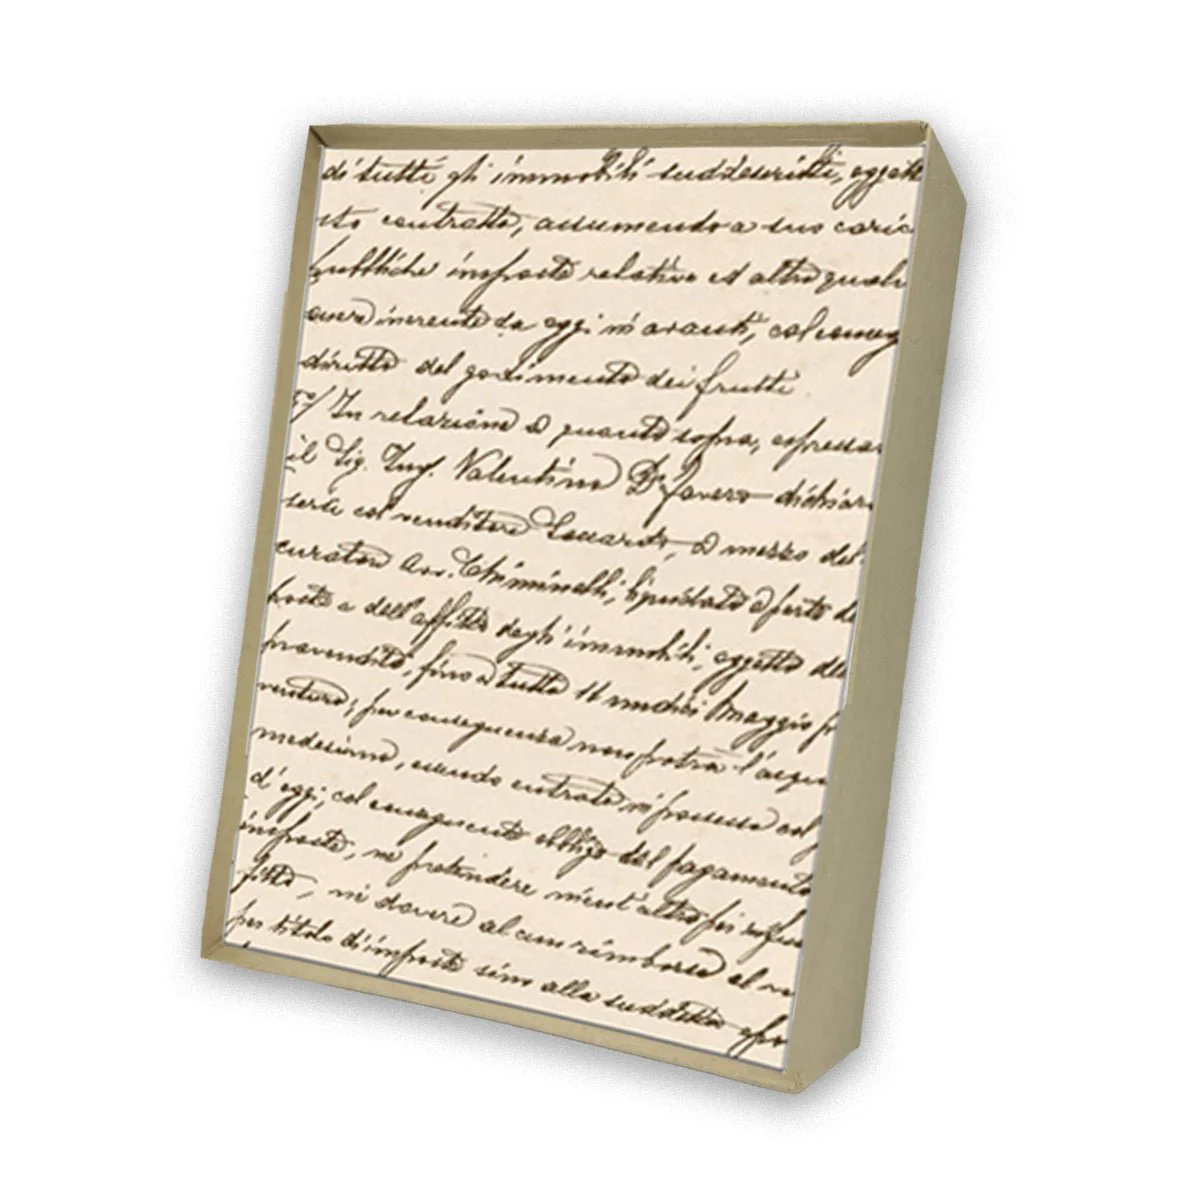 di tutti gli immobili suddescritti, oggett
sto contratto, assumendo a suo caric
pubbliche imposte relative ed altro quals
onere inerente da oggi in avanti, col conseg
diritto del godimento dei frutti.
5°/ In relazione a quanto sopra, espressa
il Sig. Ing. Valentino Dr. Favero dichiar
col venditore a mezzo del
curatore Avv. Chiminelli,
dell'affitto degli immobili, oggetto del
fino a tutto 11 undici Maggio p
venturo; per conseguenza non potrà l'acqui
medesimo, essendo entrato in possesso col
d'oggi; col conseguente obbligo del pagamento
imposte, ne pretendere nient'altro per
fitto, ne dovere alcun rimborso al ve
per titolo di imposte sino alla suddetta